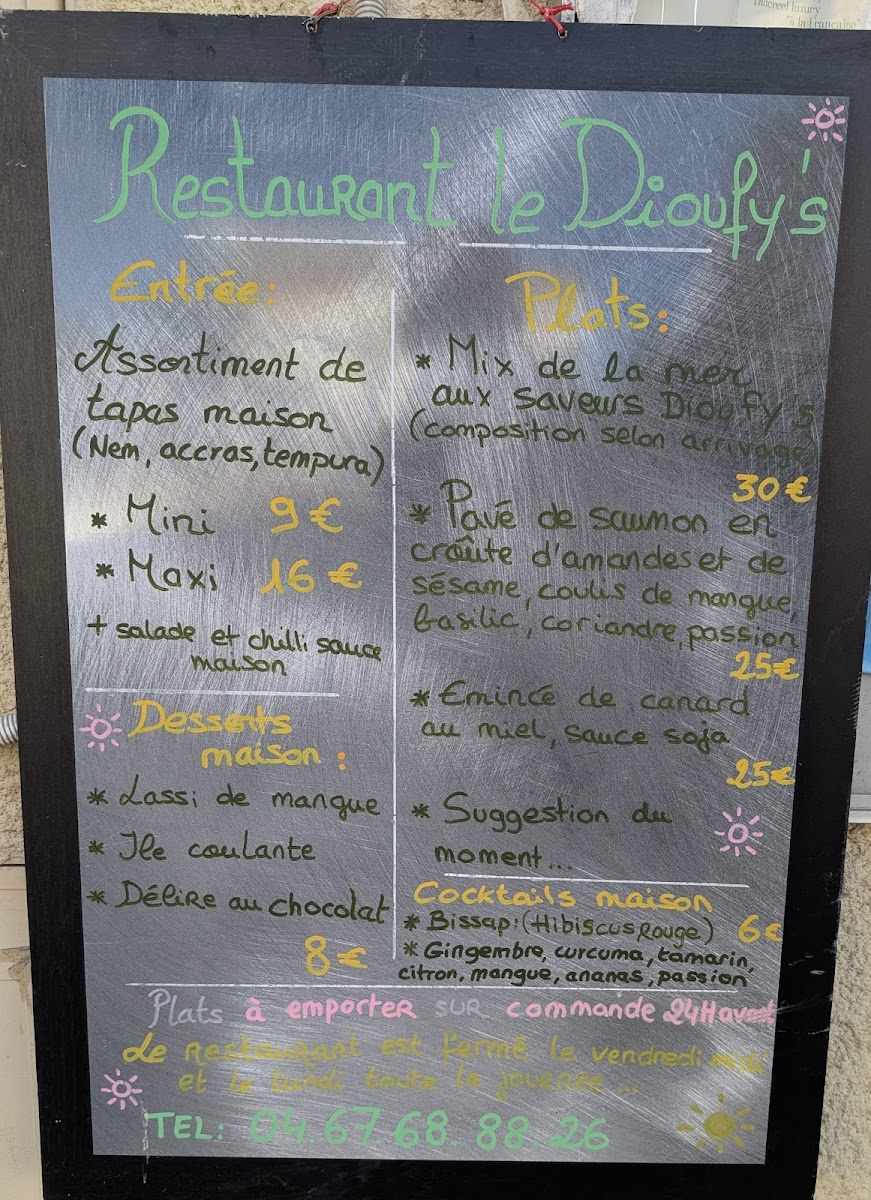 Discreet luxury
"à la Française"
Restaurant le Dioufy's
Entrée:
Assortiment de
tapas maison
(Nem, accras, tempura)
* Mini 9€
* Maxi 16€
+ salade et chilli sauce
maison
Desserts
maison :
* Lassi de mangue
* Ile coulante
* Délire au chocolat
8€
Plats:
* Mix de la mer
aux saveurs Dioufy's
(composition selon arrivage)
30€
* Pavé de saumon en
croûte d'amandes et de
sésame, coulis de mangue,
basilic, coriandre, passion
25€
* Emincé de canard
au miel, sauce soja
25€
* Suggestion du
moment...
Cocktails maison
* Bissap: (Hibiscus Rouge) 6€
* Gingembre, curcuma, tamarin,
citron, mangue, ananas, passion
Plats à emporter sur commande 24H avant
Le restaurant est fermé le vendredi midi
et le lundi toute la journée...
TEL: 04.67.68.88.26